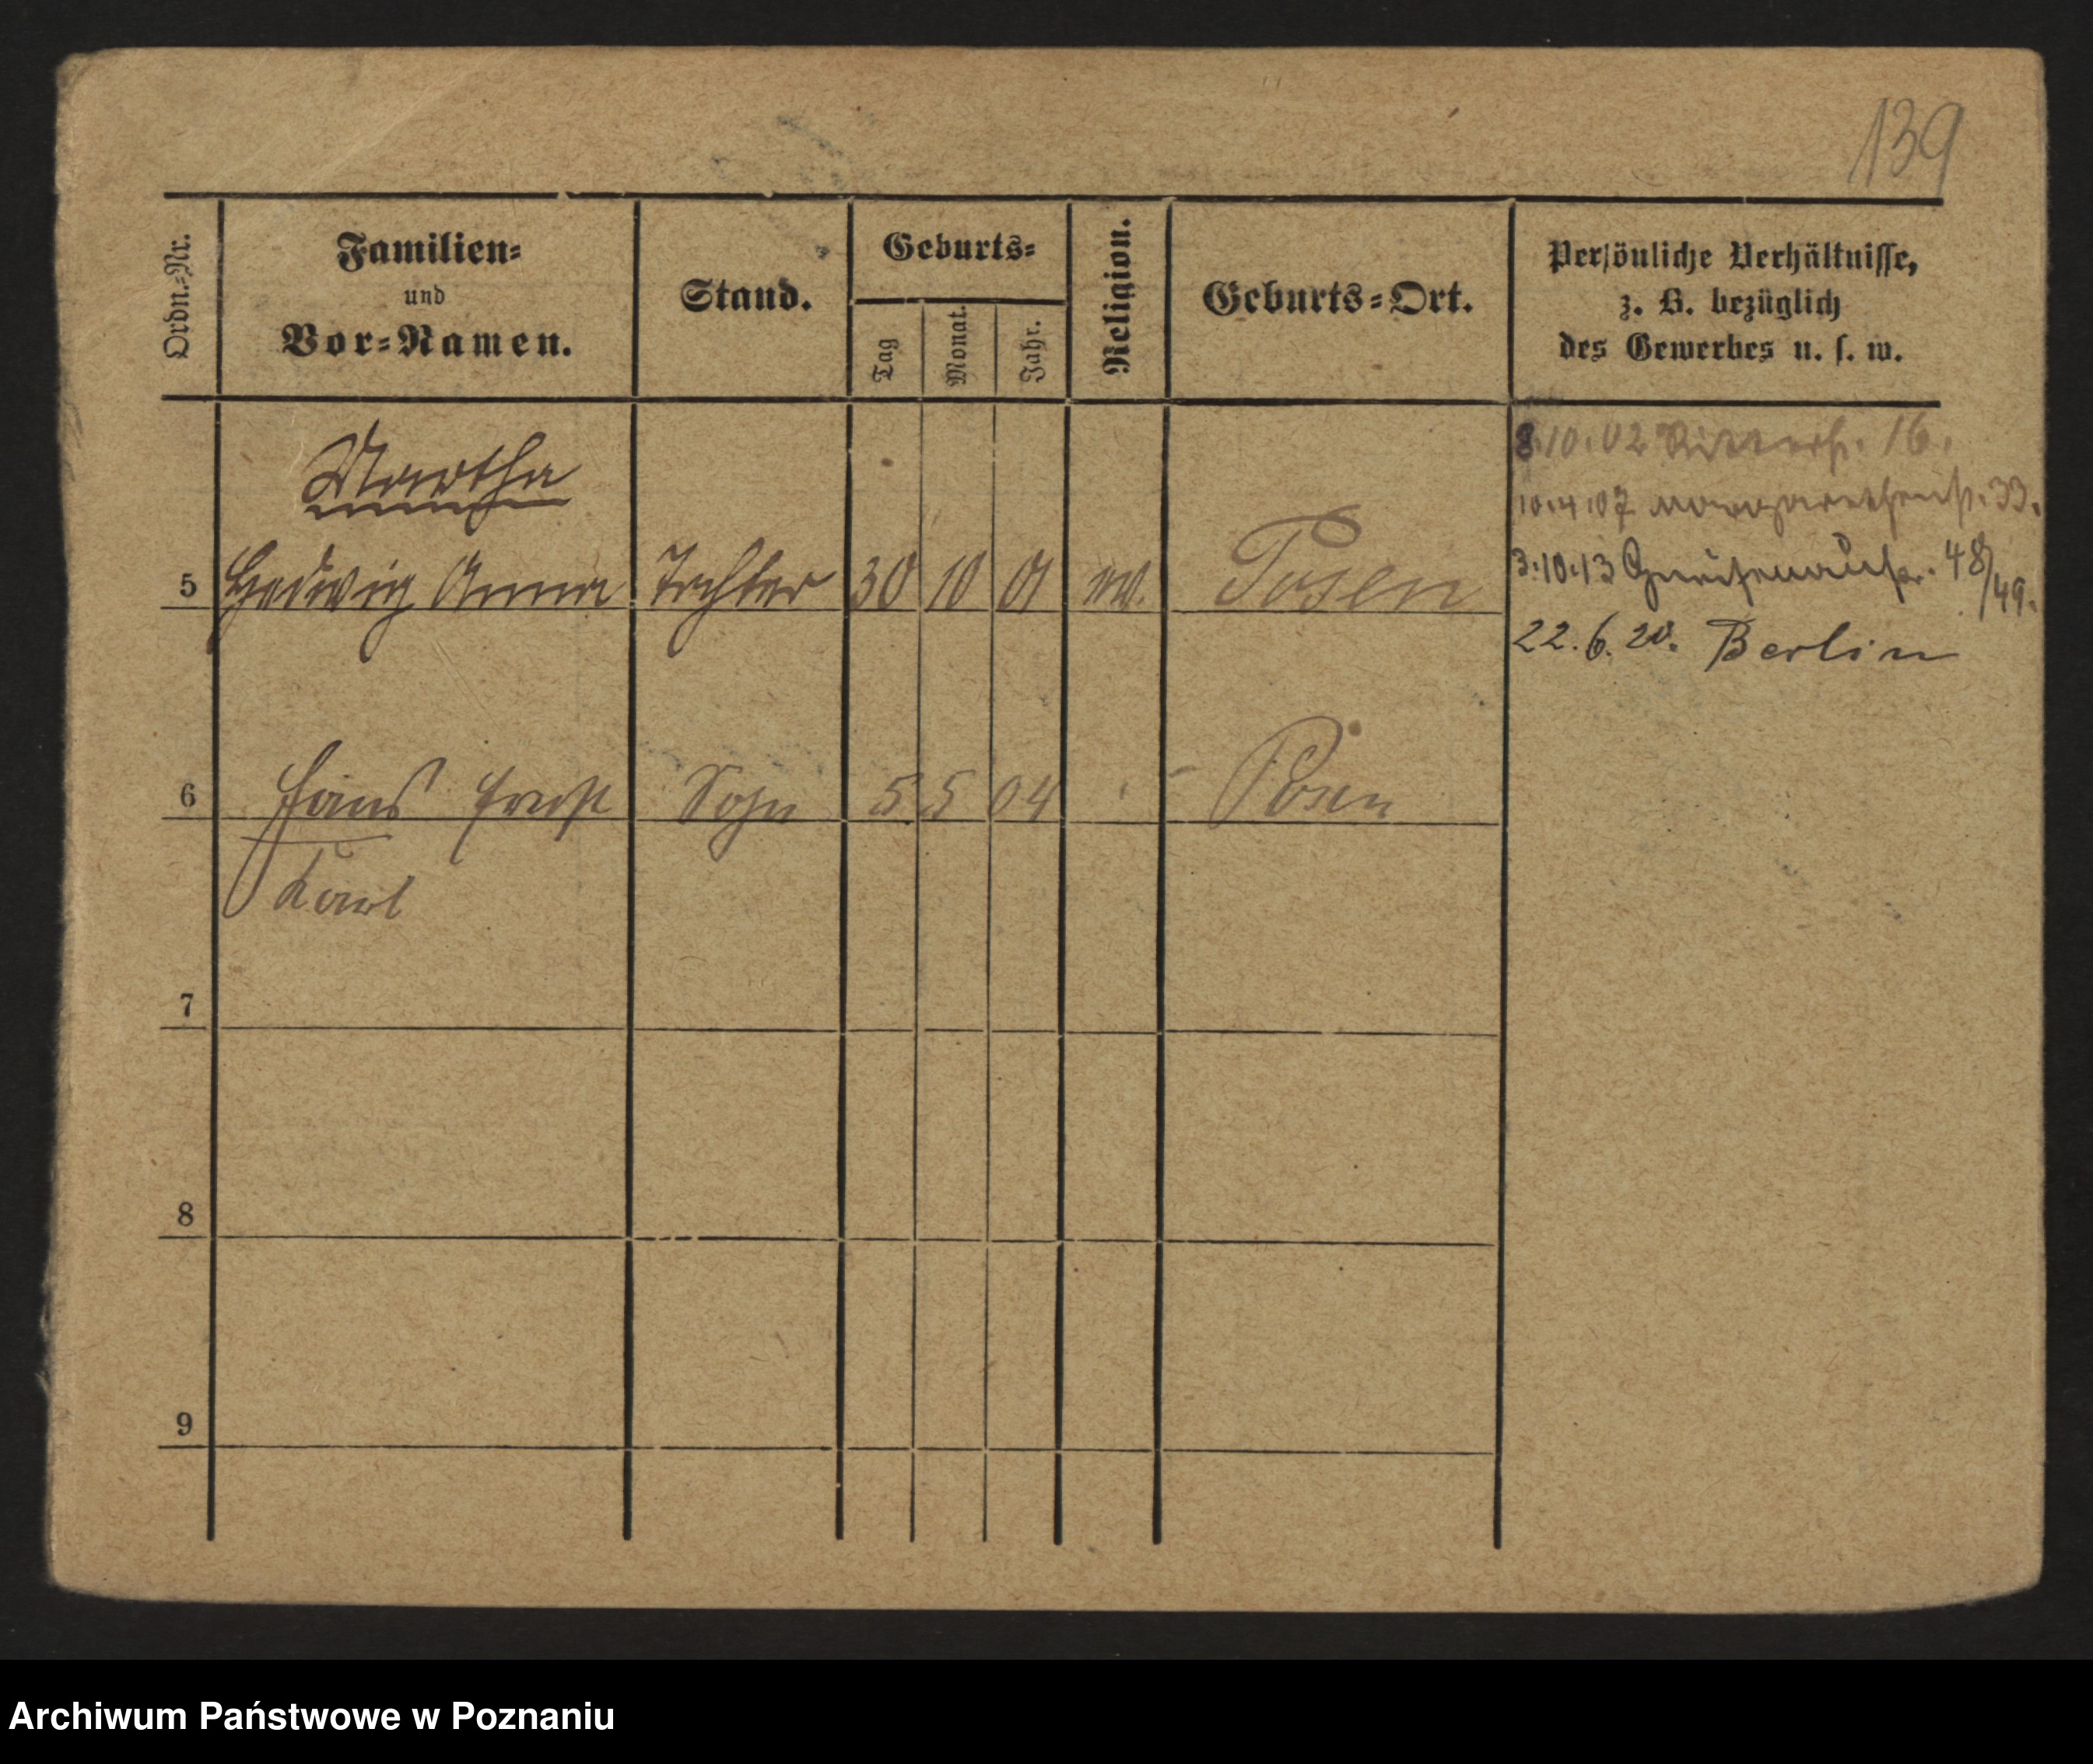 139
Ordn.-Nr.
Familien-
und
Vor-Namen.
Stand.
Geburts-
Tag
Monat.
Jahr.
Religion.
Geburts-Ort.
Persönliche Verhältnisse,
z. B. bezüglich
des Gewerbes u. s. w.
8.10.02 Ritterstr. 16.
10.4.07 Margarethenstr. 33.
3.10.13 Gneisenaustr. 48/49.
22.6.20. Berlin
Martha
5 Hedwig Anna Tochter 30 10 01 Posen
6 Hans Ernst Sohn 5 5 04 Posen
Karl
7
8
9
Archiwum Państwowe w Poznaniu